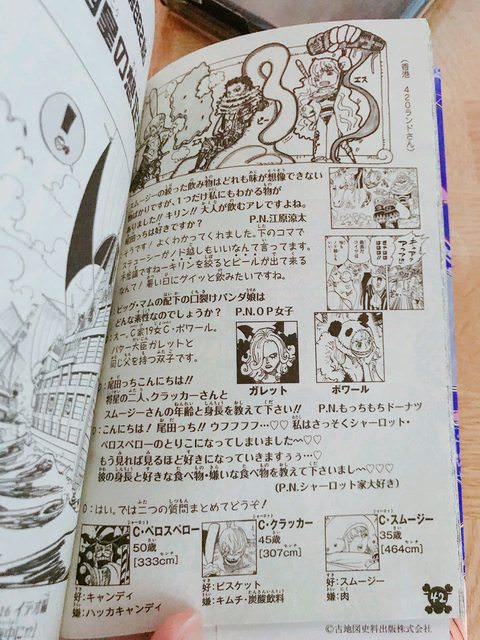 (香港 420ランドさん)
エス
ビー
スムージーの絞った飲み物はどれも味が想像できない
物ばかりですが、1つだけ私にもわかる物が
ありました!! キリン!! 大人が飲むアレですよね。
尾田っちは好きですか? P.N.江原涼太
そうです! よくわかってくれました。下のコマで
スムージーがノド越しもいいなんて言ってます。
不思議ですねーキリンを絞るとビールが出て来る
なんて! 暑い日にグイッと飲みたいですね。
ビッグ・マムの配下の口裂けパンダ娘は
どんな素性なのでしょうか? P.N.OP女子
C家19女C・ポワール。
バター大臣ガレットと
同じ父を持つ双子です。
ガレット
ポワール
D:尾田っちこんにちは!!
将星の二人、クラッカーさんと
スムージーさんの年齢と身長を教えて下さい!! P.N.もっちもちドーナツ
D:こんにちは! 尾田っち!! ウフフフフ…♡♡ 私はさっそくシャーロット・
ペロスペローのとりこになってしまいました~♡♡
もう見れば見るほど好きになっていきますぅぅ…♡
彼の身長と好きな食べ物・嫌いな食べ物を教えて下さいまし~♡♡♡
(P.N.シャーロット家大好き)
O:はい。では二つの質問まとめてどうぞ!
C・ペロスペロー
50歳
[333cm]
好:キャンディ
嫌:ハッカキャンディ
C・クラッカー
45歳
[307cm]
好:ビスケット
嫌:キムチ・炭酸飲料
C・スムージー
35歳
[464cm]
好:スムージー
嫌:肉
42
©古地図史料出版株式会社